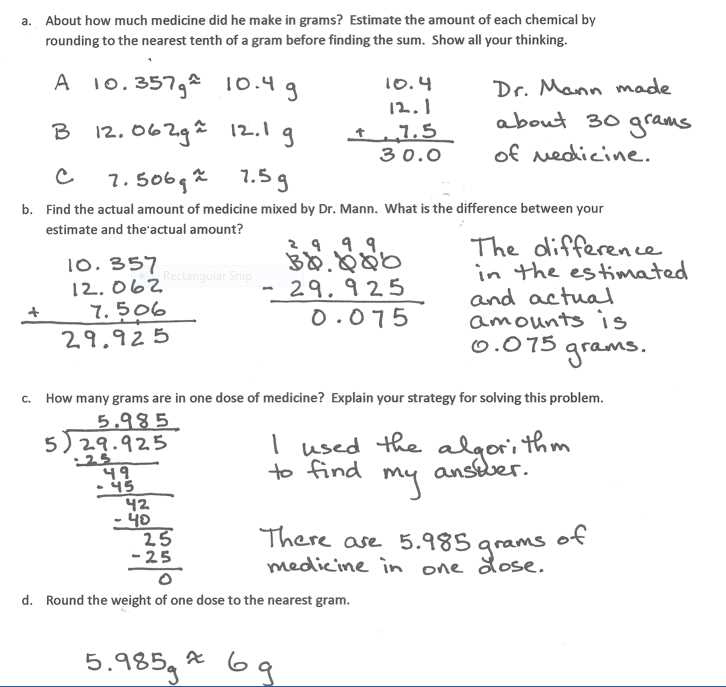 a. About how much medicine did he make in grams? Estimate the amount of each chemical by
rounding to the nearest tenth of a gram before finding the sum. Show all your thinking.
A 10.357g ≈ 10.4 g
B 12.062g ≈ 12.1 g
C 7.506g ≈ 7.5g
10.4
12.1
+ 7.5
30.0
Dr. Mann made
about 30 grams
of medicine.
b. Find the actual amount of medicine mixed by Dr. Mann. What is the difference between your
estimate and the actual amount?
10.357
12.062
+ 7.506
29.925
Rectangular Snip
2 9 9 9
30.000
- 29.925
0.075
The difference
in the estimated
and actual
amounts is
0.075 grams.
c. How many grams are in one dose of medicine? Explain your strategy for solving this problem.
5.985
5)29.925
-25
49
-45
42
-40
25
-25
0
I used the algorithm
to find my answer.
There are 5.985 grams of
medicine in one dose.
d. Round the weight of one dose to the nearest gram.
5.985g ≈ 6g